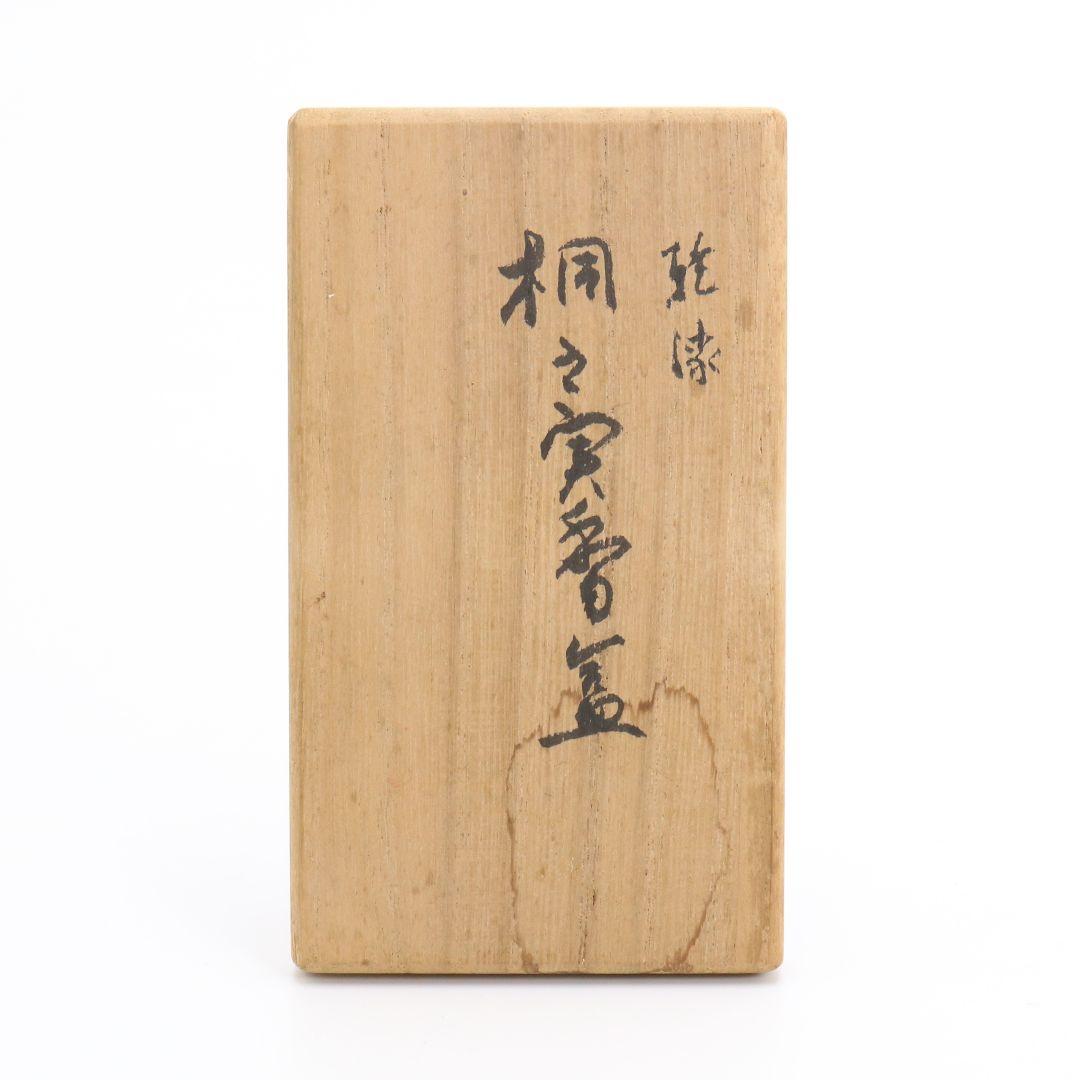 乾漆
桐之実香盒